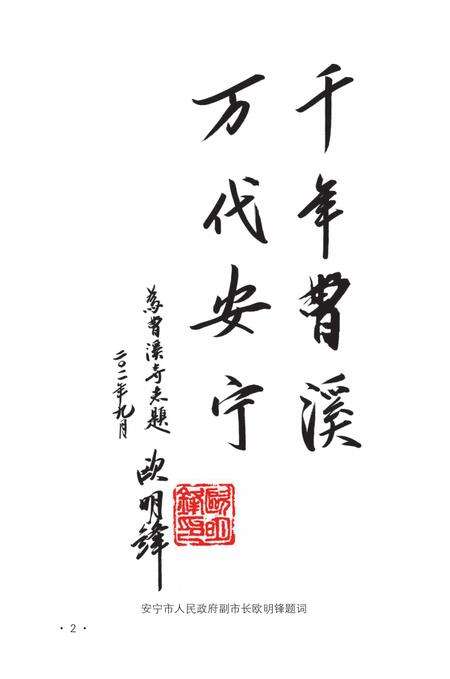 千年曹溪
万代安宁
为曹溪寺志题
二〇二一年九月
欧明锋
安宁市人民政府副市长欧明锋题词
· 2 ·